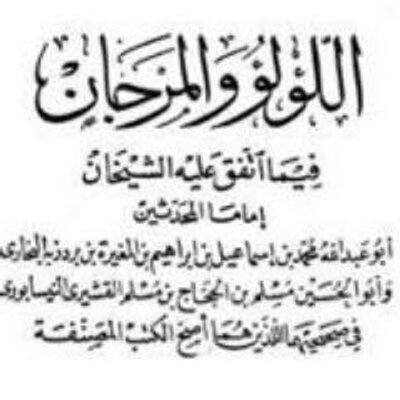 اللؤلؤ والمرجان
فيما اتفق عليه الشيخان
إماما المحدثين
أبو عبد الله محمد بن إسماعيل بن إبراهيم بن المغيرة بن بردزبه البخاري
وأبو الحسين مسلم بن الحجاج بن مسلم القشيري النيسابوري
في صحيحيهما اللذين هما أصح الكتب المصنفة